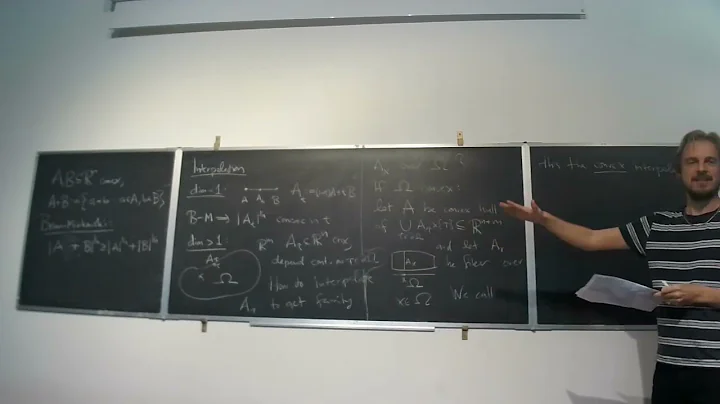 A, B ⊆ ℝⁿ convex,
A+B = {a+b : a∈A, b∈B},
Brunn-Minkowski:
|A + B|^{1/n} ≥ |A|^{1/n} + |B|^{1/n}
Interpolation
dim=1:
A A_t B
A_t = (1-t)A+tB
B-M ⟹ |A_t|^{1/n} concave in t
dim>1:
ℝᵐ A_τ ⊆ ℝⁿ
depend cont. on τ
A_τ
x Ω
How do interpolate
to get family
A_x
A_x Ω ?
If Ω convex:
let A be convex hull
of ∪ A_τ×{τ} ⊆ ℝⁿ⁺ᵐ
and let A_x
A_x be fiber over
x
x∈Ω We call
this the convex